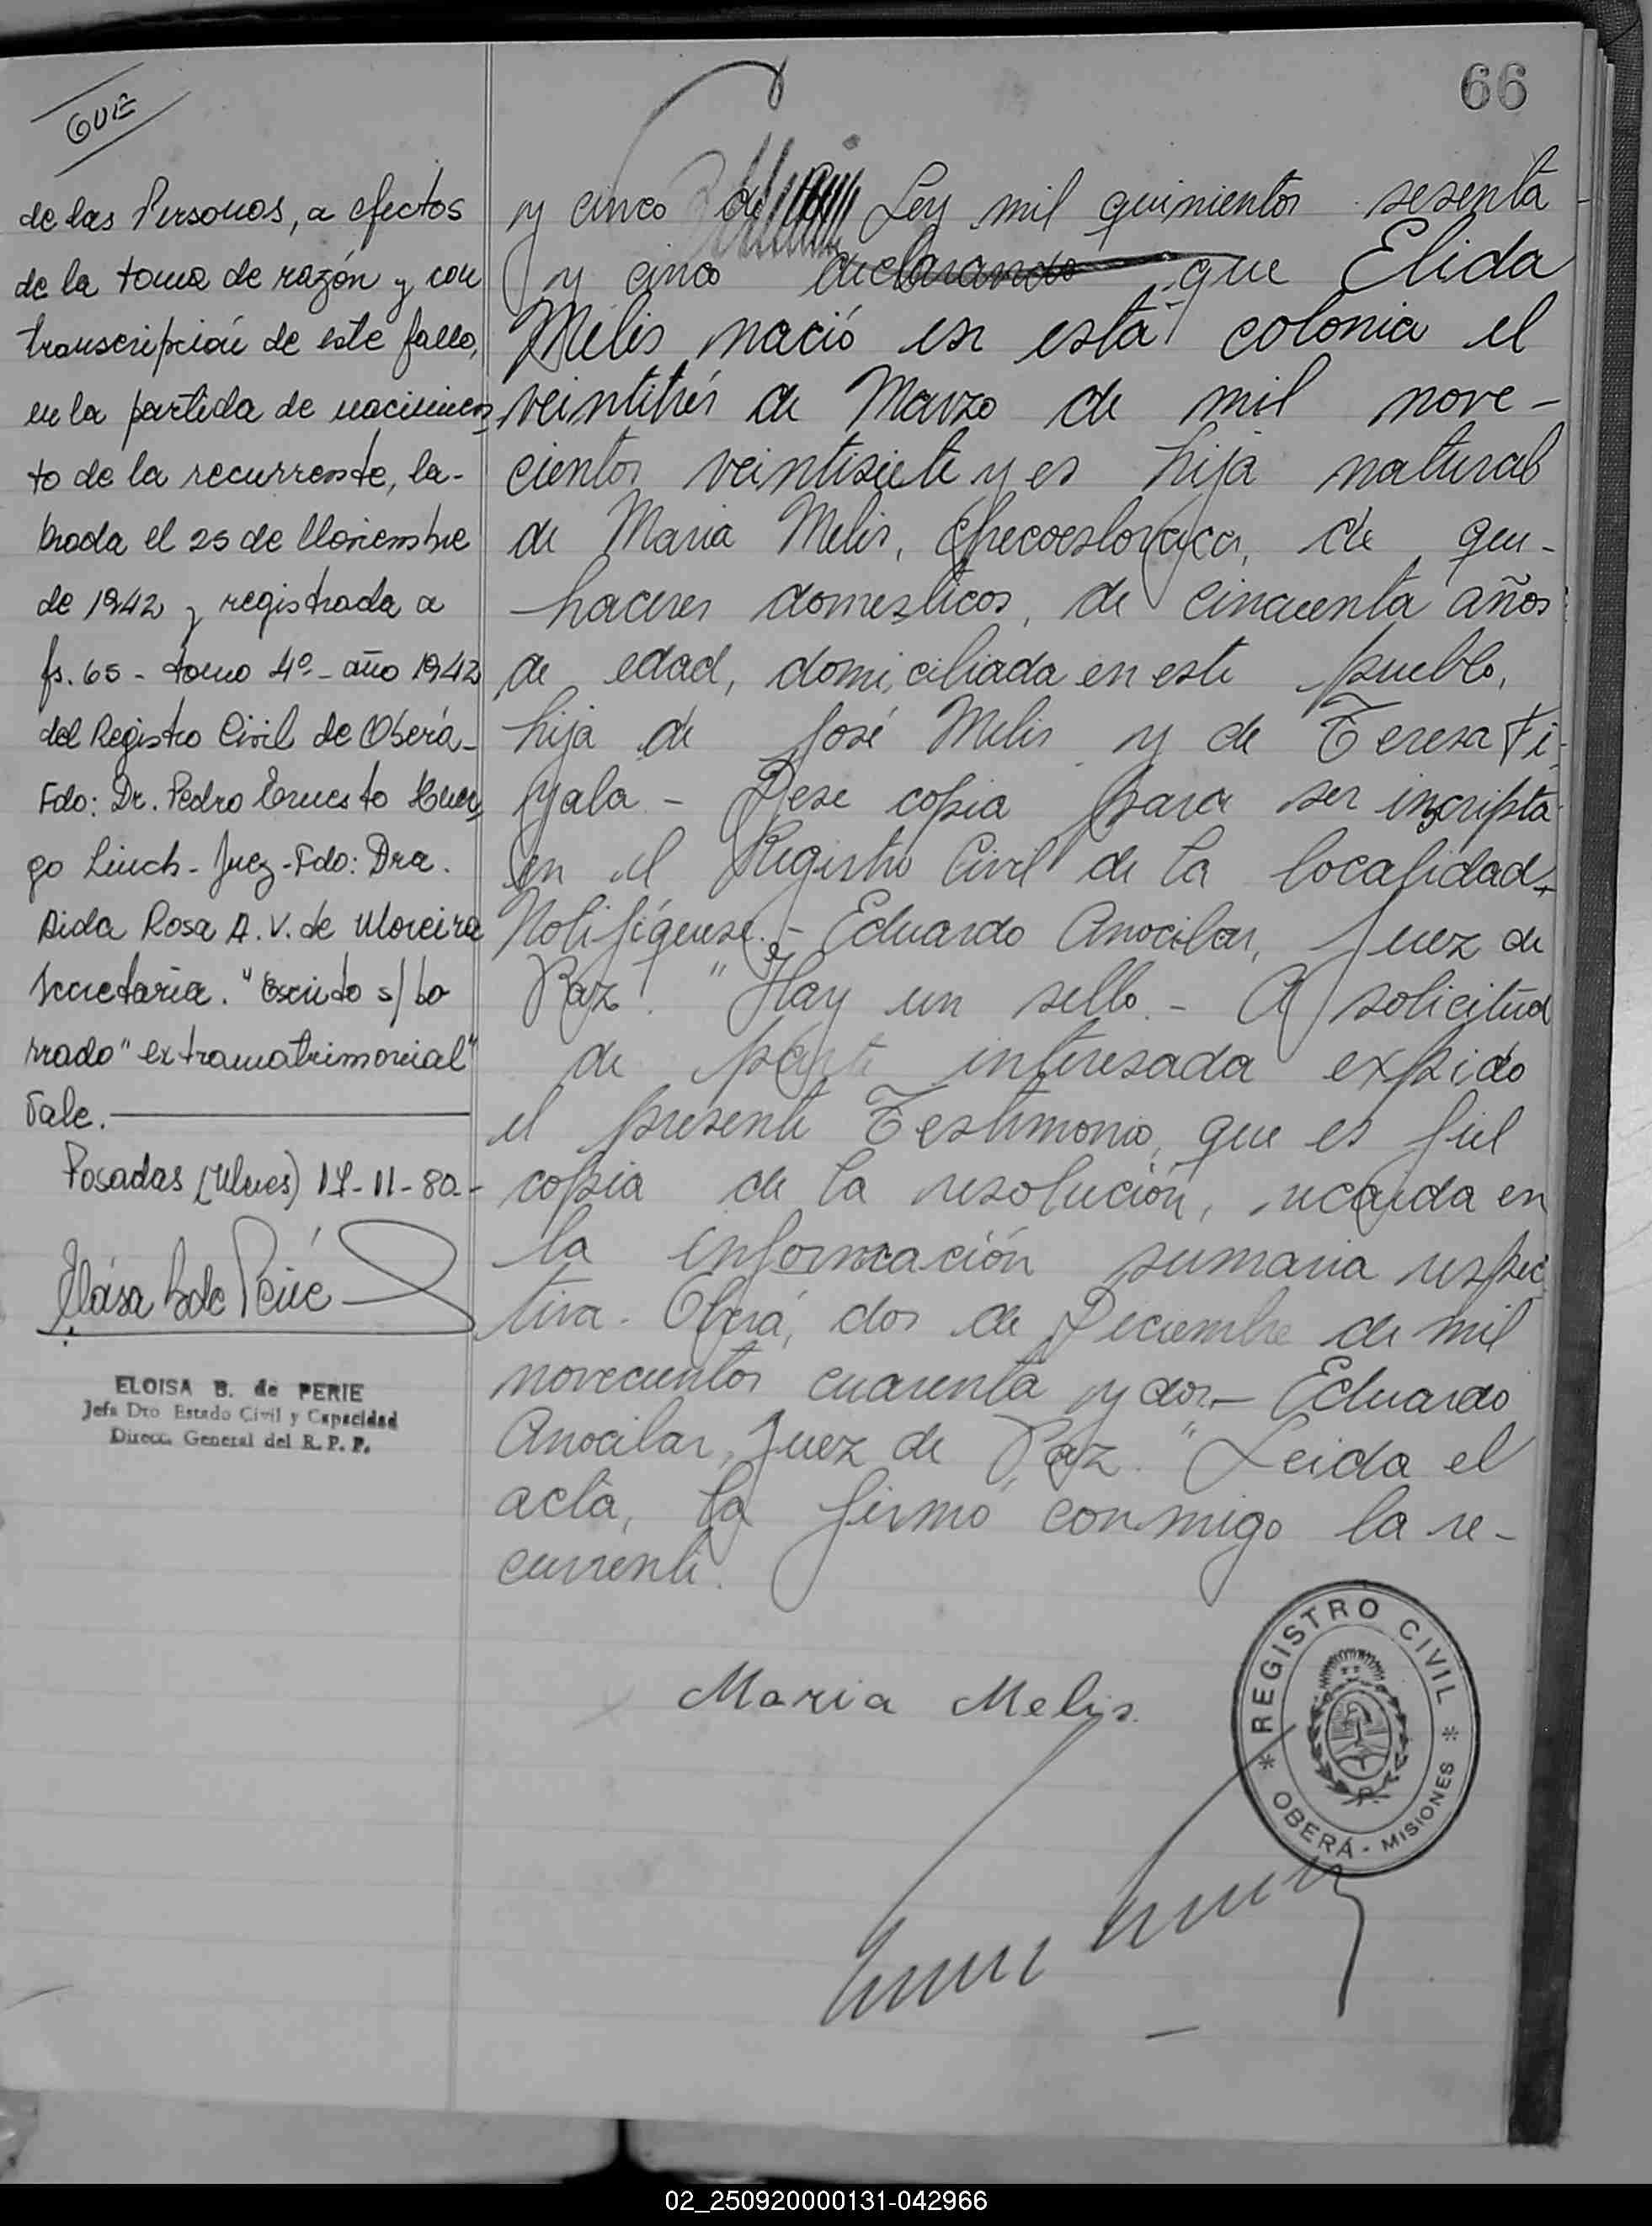 66
de las Personas, a efectos
de la toma de razón y con
transcripción de este fallo,
en la partida de nacimien
to de la recurrente, la-
brada el 25 de Noviembre
de 1942 y registrada a
fs. 65 - tomo 4º - año 1942
del Registro Civil de Oberá-
Fdo: Dr. Pedro Ernesto Huer
go Linch - Juez - Fdo: Dra.
Aida Rosa A. V. de Moreira
Secretaria. "Escrito s/ bo
rrado "extramatrimonial"
Vale.
Posadas (Mnes) 17-11-80.-
ELOISA B. de PERIE
Jefa Dto Estado Civil y Capacidad
Direcc. General del R. P. P.
y cinco de Ley mil quinientos sesenta
y cinco declarando que Elida
Melis nació en esta colonia el
veintitrés de Marzo de mil nove-
cientos veintisiete y es hija natural
de Maria Melis, checoeslovaca, de que-
haceres domesticos, de cincuenta años
de edad, domiciliada en este pueblo,
hija de José Melis y de Teresa Fi-
gala - Dese copia para ser inscripta
en el Registro Civil de la localidad.
Notifíquese. - Eduardo Anocibar, Juez de
Paz. "Hay un sello. - A solicitud
de parte interesada expido
el presente Testimonio, que es fiel
copia de la resolución, recaida en
la información sumaria respec
tiva. Oberá, dos de Diciembre de mil
novecientos cuarenta y dos.- Eduardo
Anocibar, Juez de Paz." Leida el
acta, la firmó conmigo la re-
currente.
Maria Melis.
REGISTRO CIVIL
OBERÁ - MISIONES
02_250920000131-042966